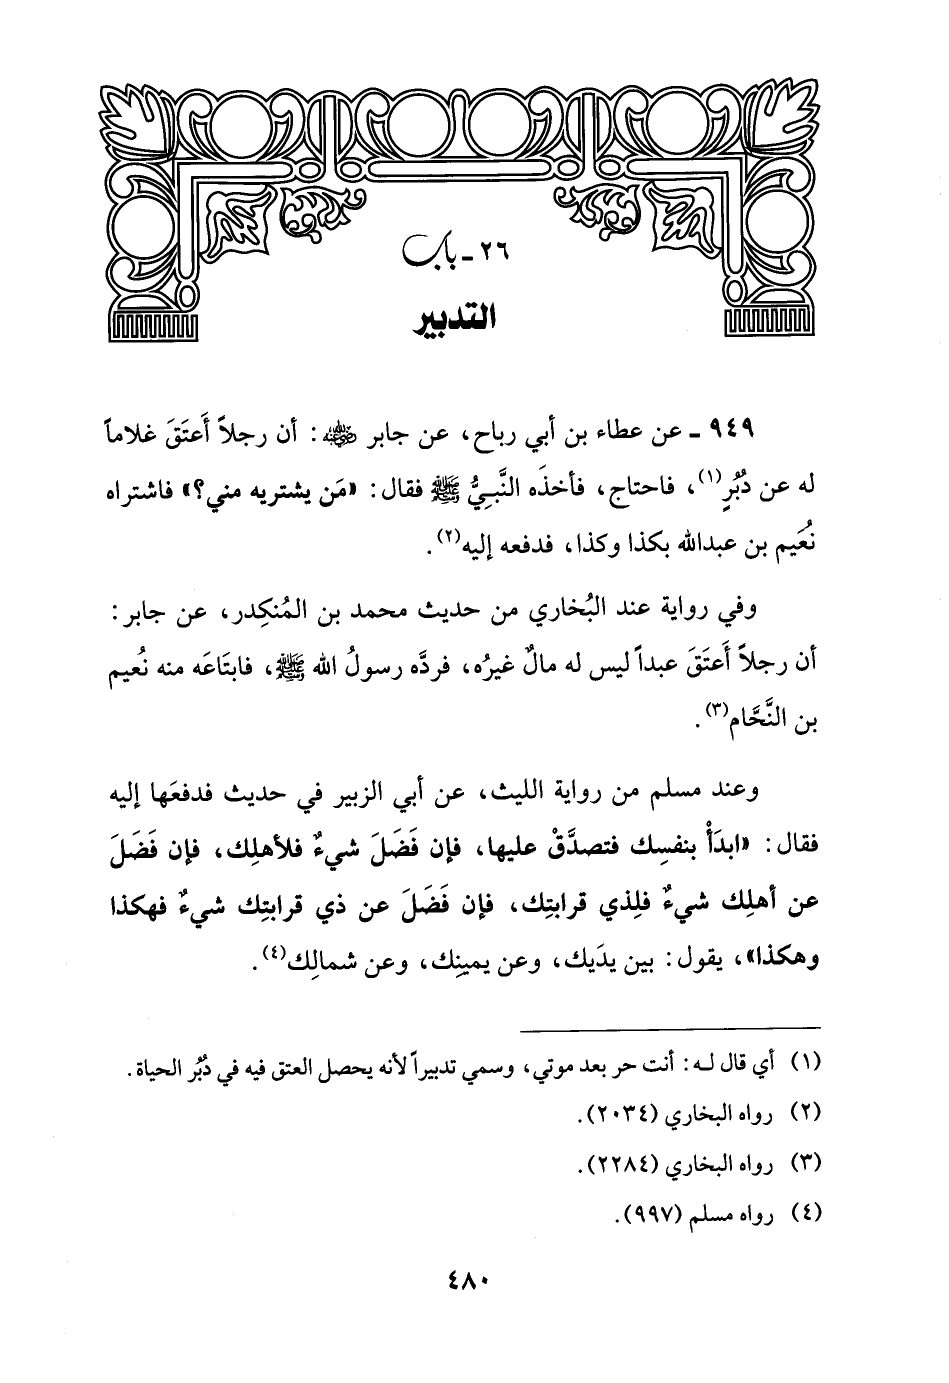 ٢٦ - باب
التدبير
٩٤٩ - عن عطاء بن أبي رباح، عن جابر ﵁: أن رجلاً أَعتَقَ غلاماً
له عن دُبُرٍ(١)، فاحتاج، فأخذَه النَّبِيُّ ﷺ فقال: «مَن يشتريه مني؟» فاشتراه
نُعَيم بن عبدالله بكذا وكذا، فدفعه إليه(٢).
وفي رواية عند البُخاري من حديث محمد بن المُنكِدر، عن جابر:
أن رجلاً أَعتَقَ عبداً ليس له مالٌ غيرُه، فردَّه رسولُ الله ﷺ، فابتَاعَه منه نُعيم
بن النَّحَّام(٣).
وعند مسلم من رواية الليث، عن أبي الزبير في حديث فدفعَها إليه
فقال: «ابدَأْ بنفسِك فتصدَّقْ عليها، فإن فَضَلَ شيءٌ فلأهلِك، فإن فَضَلَ
عن أهلِك شيءٌ فلِذي قرابتِك، فإن فَضَلَ عن ذي قرابتِك شيءٌ فهكذا
وهكذا»، يقول: بين يدَيك، وعن يمينِك، وعن شمالِك(٤).
(١) أي قال له: أنت حر بعد موتي، وسمي تدبيراً لأنه يحصل العتق فيه في دُبُر الحياة.
(٢) رواه البخاري (٢٠٣٤).
(٣) رواه البخاري (٢٢٨٤).
(٤) رواه مسلم (٩٩٧).
٤٨٠